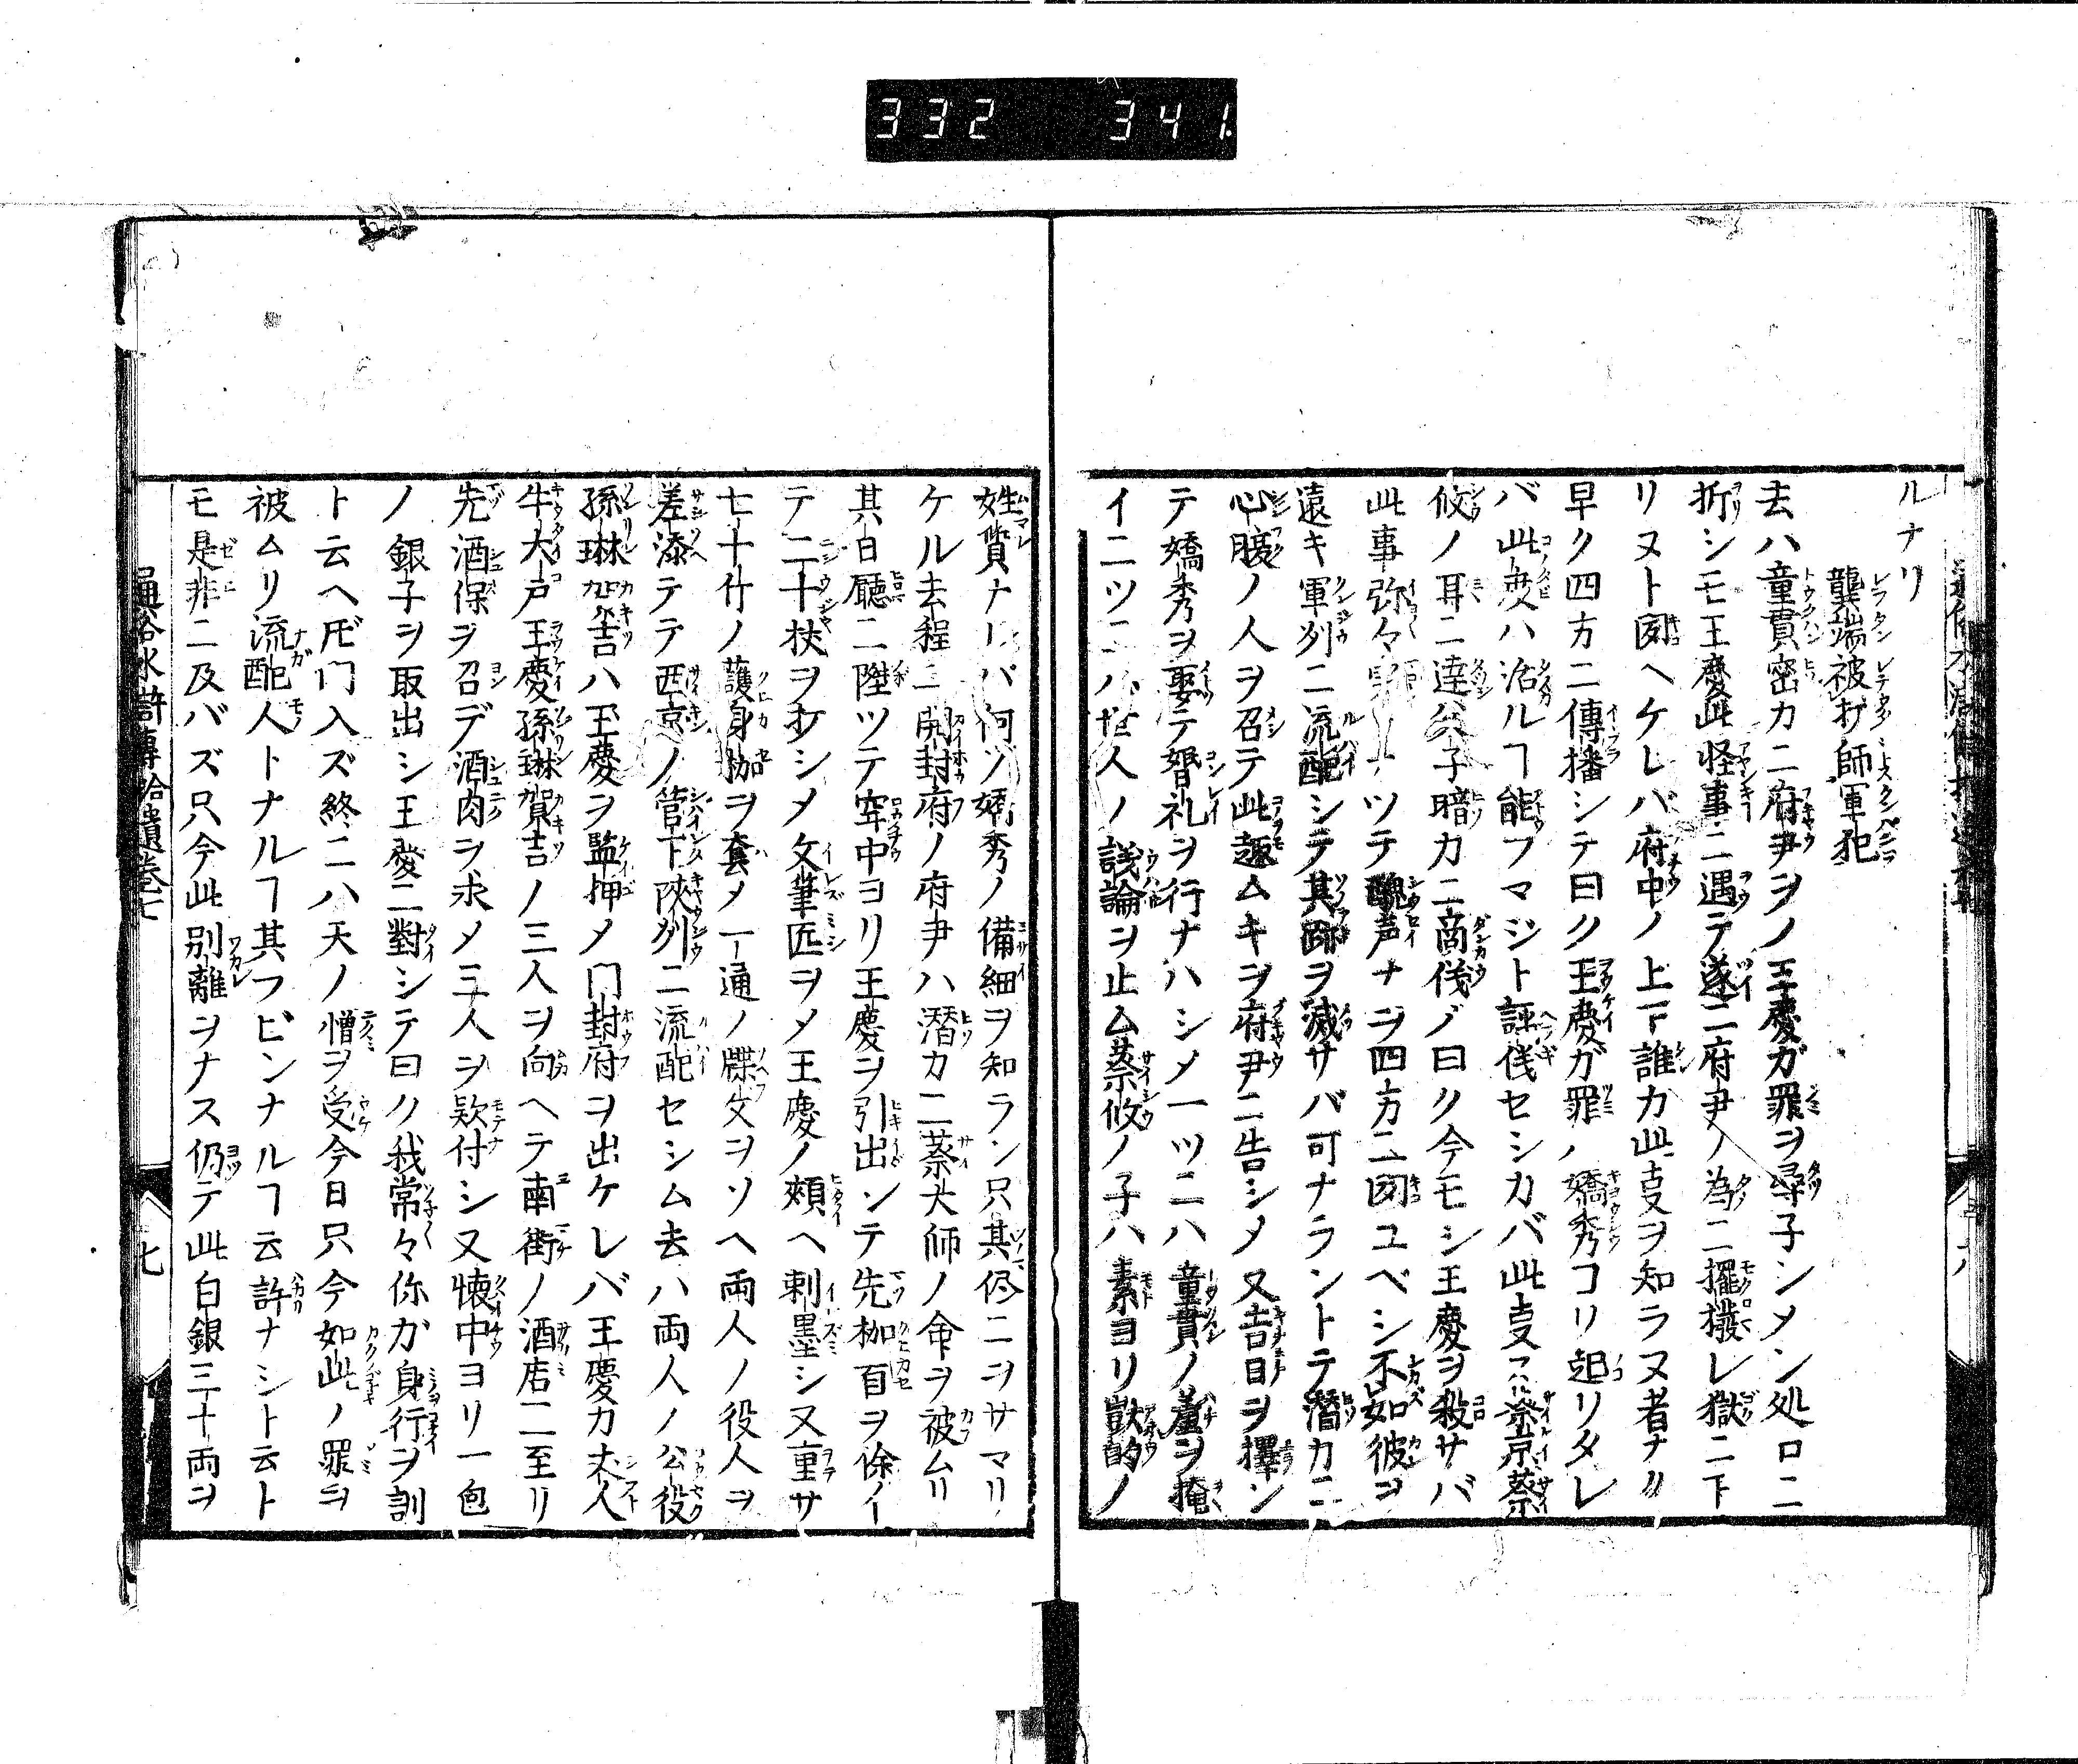 332 341
ルナリ
龔端被打師軍犯
去ハ童貫密カニ府尹ヲノ王慶ガ罪ヲ尋子シメン処ロニ
折シモ王慶此怪事ニ遇テ遂ニ府尹ノ為ニ擺撥レ獄ニ下
リヌト囡ヘケレバ府中ノ上下誰カ此㕝ヲ知ラヌ者ナリ
早ク四方ニ傳播シテ曰ク王慶ガ罪ノ嬌秀コリ起リタレ
バ此度ハ活ルヿ能フマジト評儀セシカバ此㕝ニ蔡京蔡
攸ノ耳ニ達父子暗カニ商儀ノ曰ク今モシ王慶ヲ殺サバ
此事弥々ツテ醜声ナヲ四方ニ囡ユベシ不如彼ヲ
遠キ軍州ニ流配シテ其跡ヲ滅サバ可ナラントテ潜カニ
心腹ノ人ヲ召テ此趣ムキヲ府尹ニ告シメ又吉日ヲ擇ン
テ嬌秀ヲ娶テ婚礼ヲ行ナハシメ一ツニハ童貫ノ羞ヲ掩
イニツニハ世人ノ議論ヲ止ム蔡攸ノ子ハ素ヨリ獃的ノ
姓質ナレバ何ソ嬌秀ノ備細ヲ知ラン只其侭ニヲサマリ
ケル去程ニ開封府ノ府尹ハ潜カニ蔡大師ノ命ヲ被ムリ
其日廳ニ陞ツテ牢中ヨリ王慶ヲ引出シテ先枷百ヲ除イ
テ二十杖ヲ打シメ文筆匠ヲメ王慶ノ頬ヘ刺墨シ又重サ
七十斤ノ護身枷ヲ套メ一通ノ牒文ヲソヘ両人ノ役人ヲ
差添テテ西京ノ管下陝州ニ流配セシム去ハ両人ノ公役
孫琳賀吉ハ王慶ヲ監押メ門封府ヲ出ケレバ王慶カ丈人
牛大戸王慶孫琳賀吉ノ三人ヲ向ヘテ南街ノ酒店ニ至リ
先酒保ヲ召デ酒肉ヲ求メ三人ヲ欵付シ又懐中ヨリ一包
ノ銀子ヲ取出シ王慶ニ對シテ曰ク我常々你カ身行ヲ訓
ト云ヘ𪜈門入ズ終ニハ天ノ憎ヲ受今日只今如此ノ罪ヲ
被ムリ流配人トナルヿ其フビンナルヿ云許ナシト云ト
モ是非ニ及バズ只今此別離ヲナス仍テ此白銀三十両ヲ
通俗水滸傳拾遺巻七
七